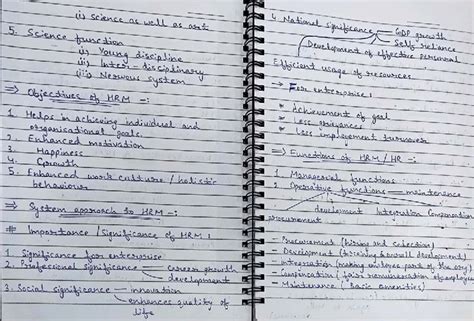 (i) science as well as art
5. Science function
(i) Young discipline
(ii) Inter-disciplinary
(iii) Nervous system
=> Objectives of HRM -:
1. Helps in achieving individual and
organisational goals.
2. Enhanced motivation
3. Happiness
4. Growth
5. Enhanced work culture / holistic
behaviour
=> System approach to HRM -:
# Importance / Significance of HRM :
1 Significance for enterprise
2. Professional significance — career growth
development
3. Social significance — innovation
enhances quality of
life
4 National significance GDP growth
Self reliance
Development of effective personnel
Efficient usage of resources
=> For enterprise :
* Achievement of goal
* Less grievances
* Less improvement turnover
=> Functions of HRM / HR -:
1. Managerial functions
2. Operative functions — maintenance
development Integration Compensation
procurement
- Procurement (hiring and selection)
- Development (training & overall development)
- Integration (making employee part of the org)
- Compensation (fair remuneration of employees
- Maintenance (Basic amenities)